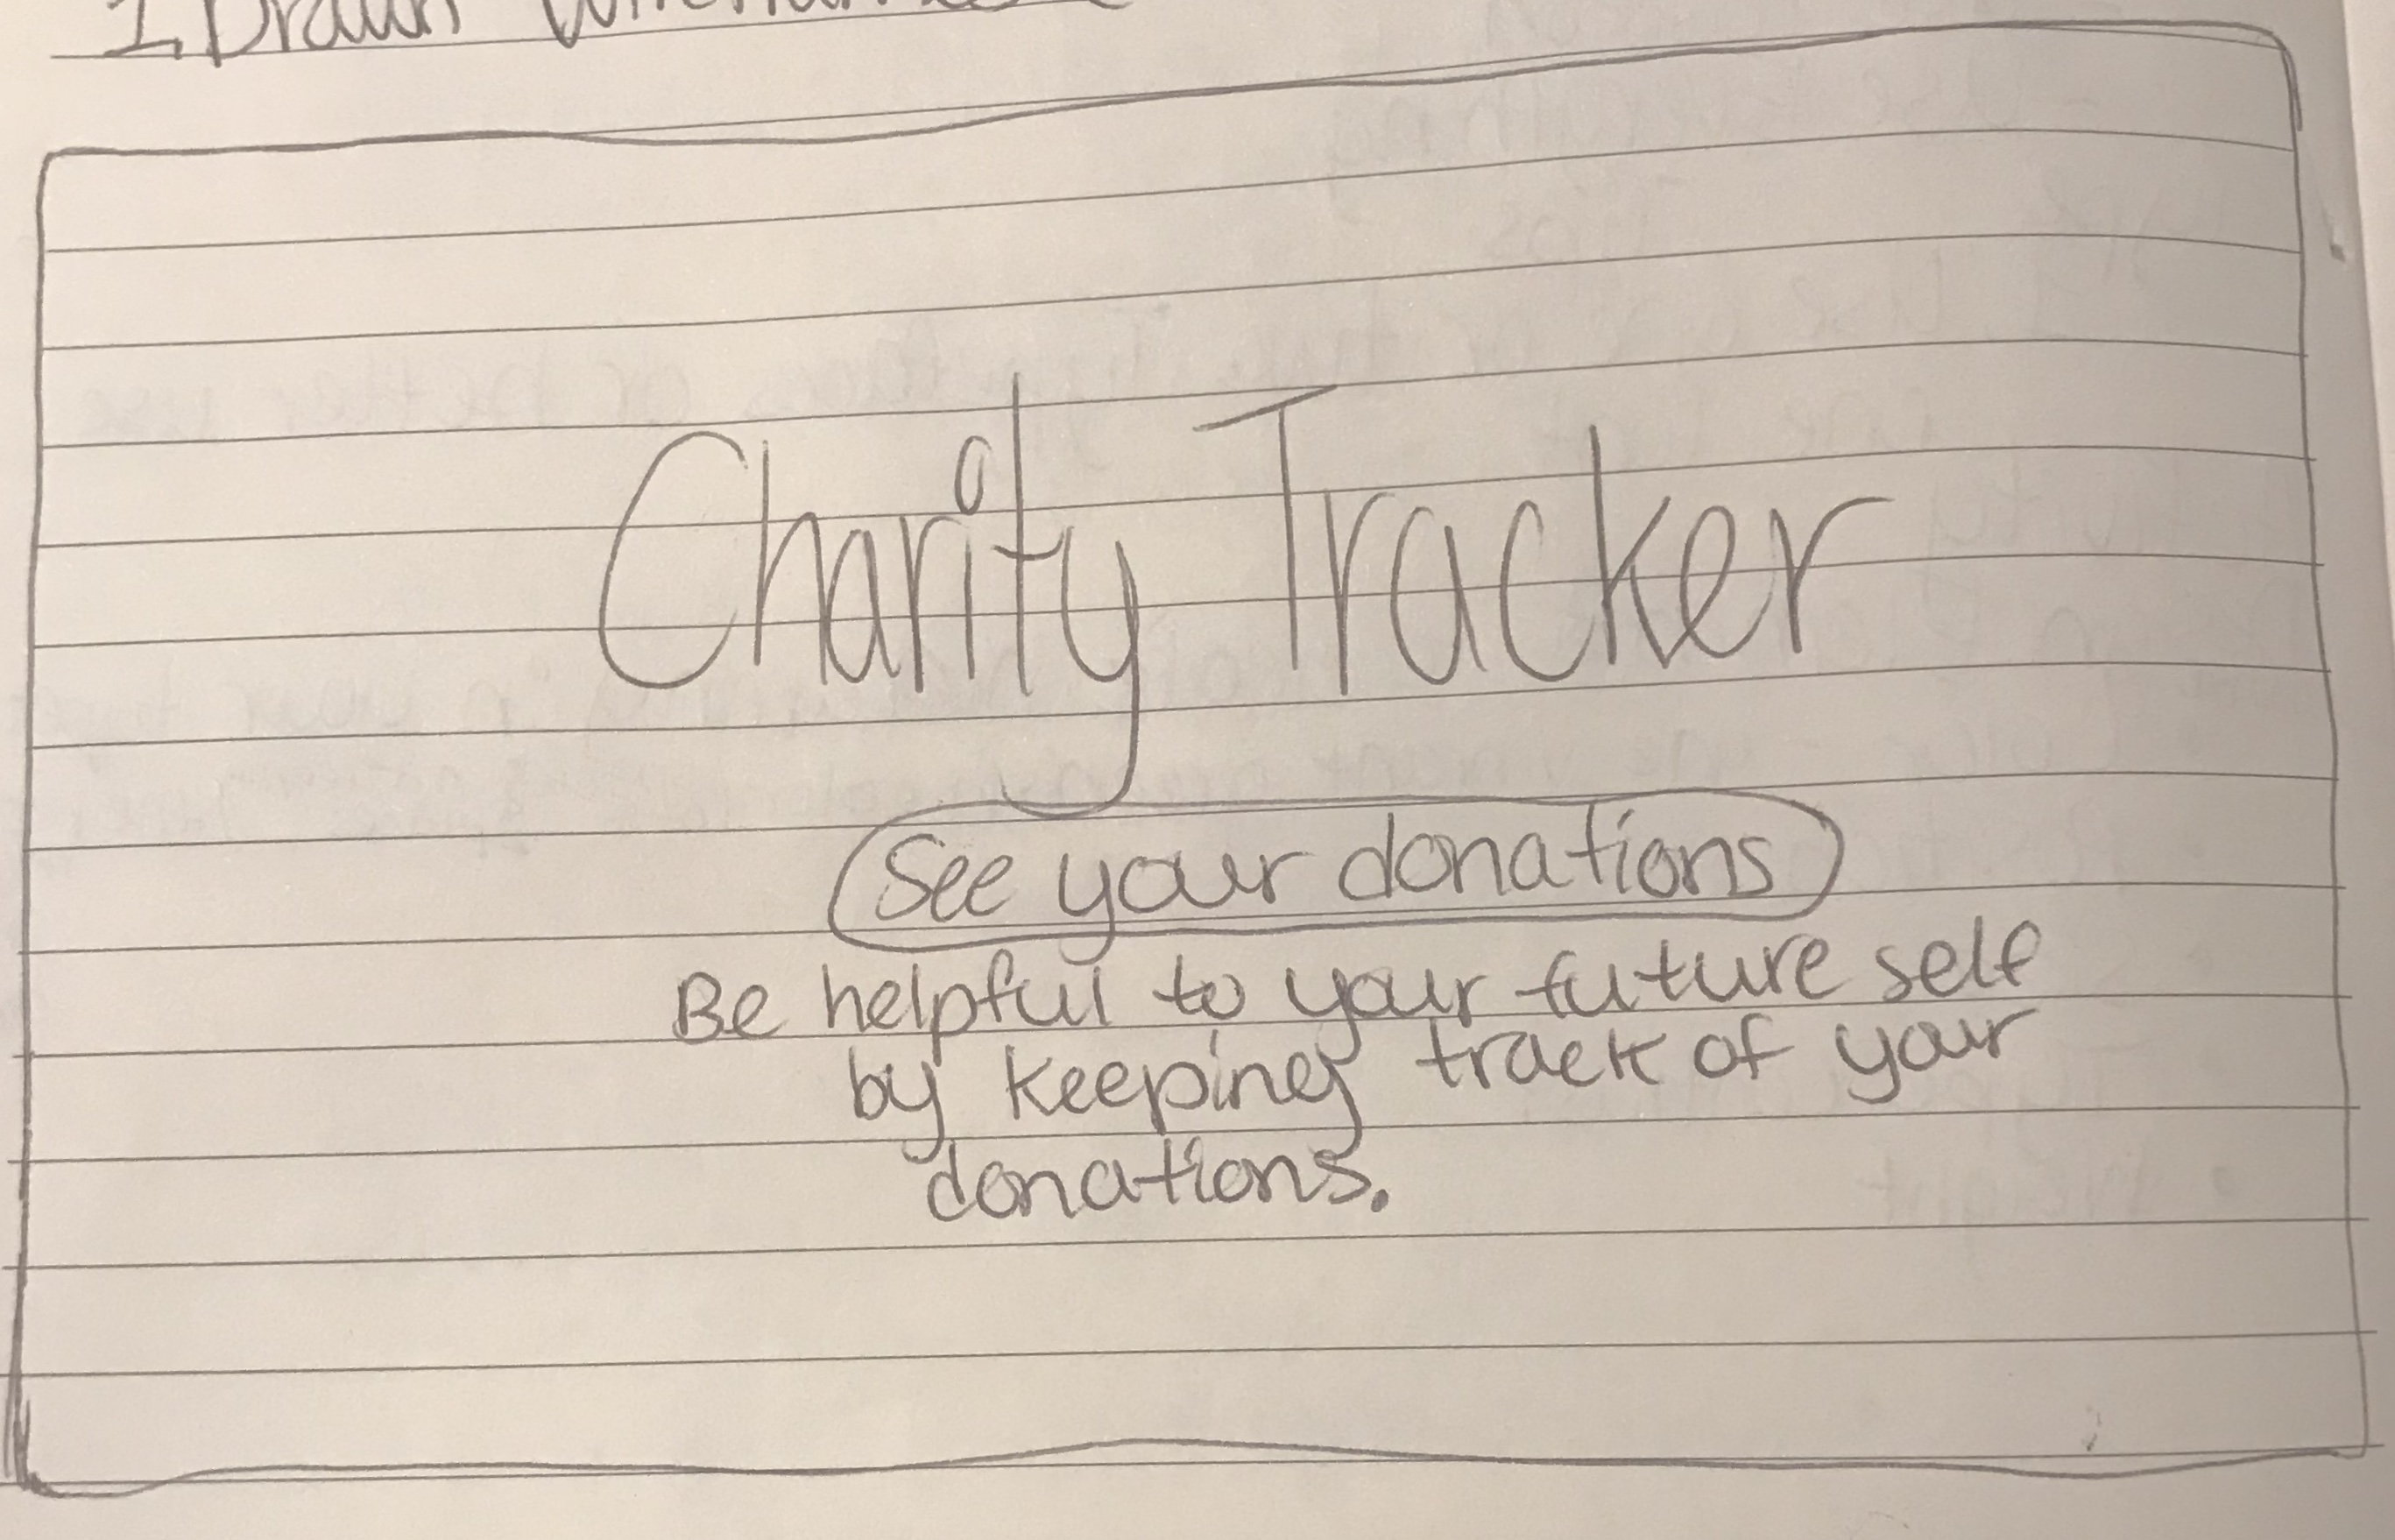 1. Drawn
Charity Tracker
See your donations
Be helpful to your future self
by keeping track of your
donations.